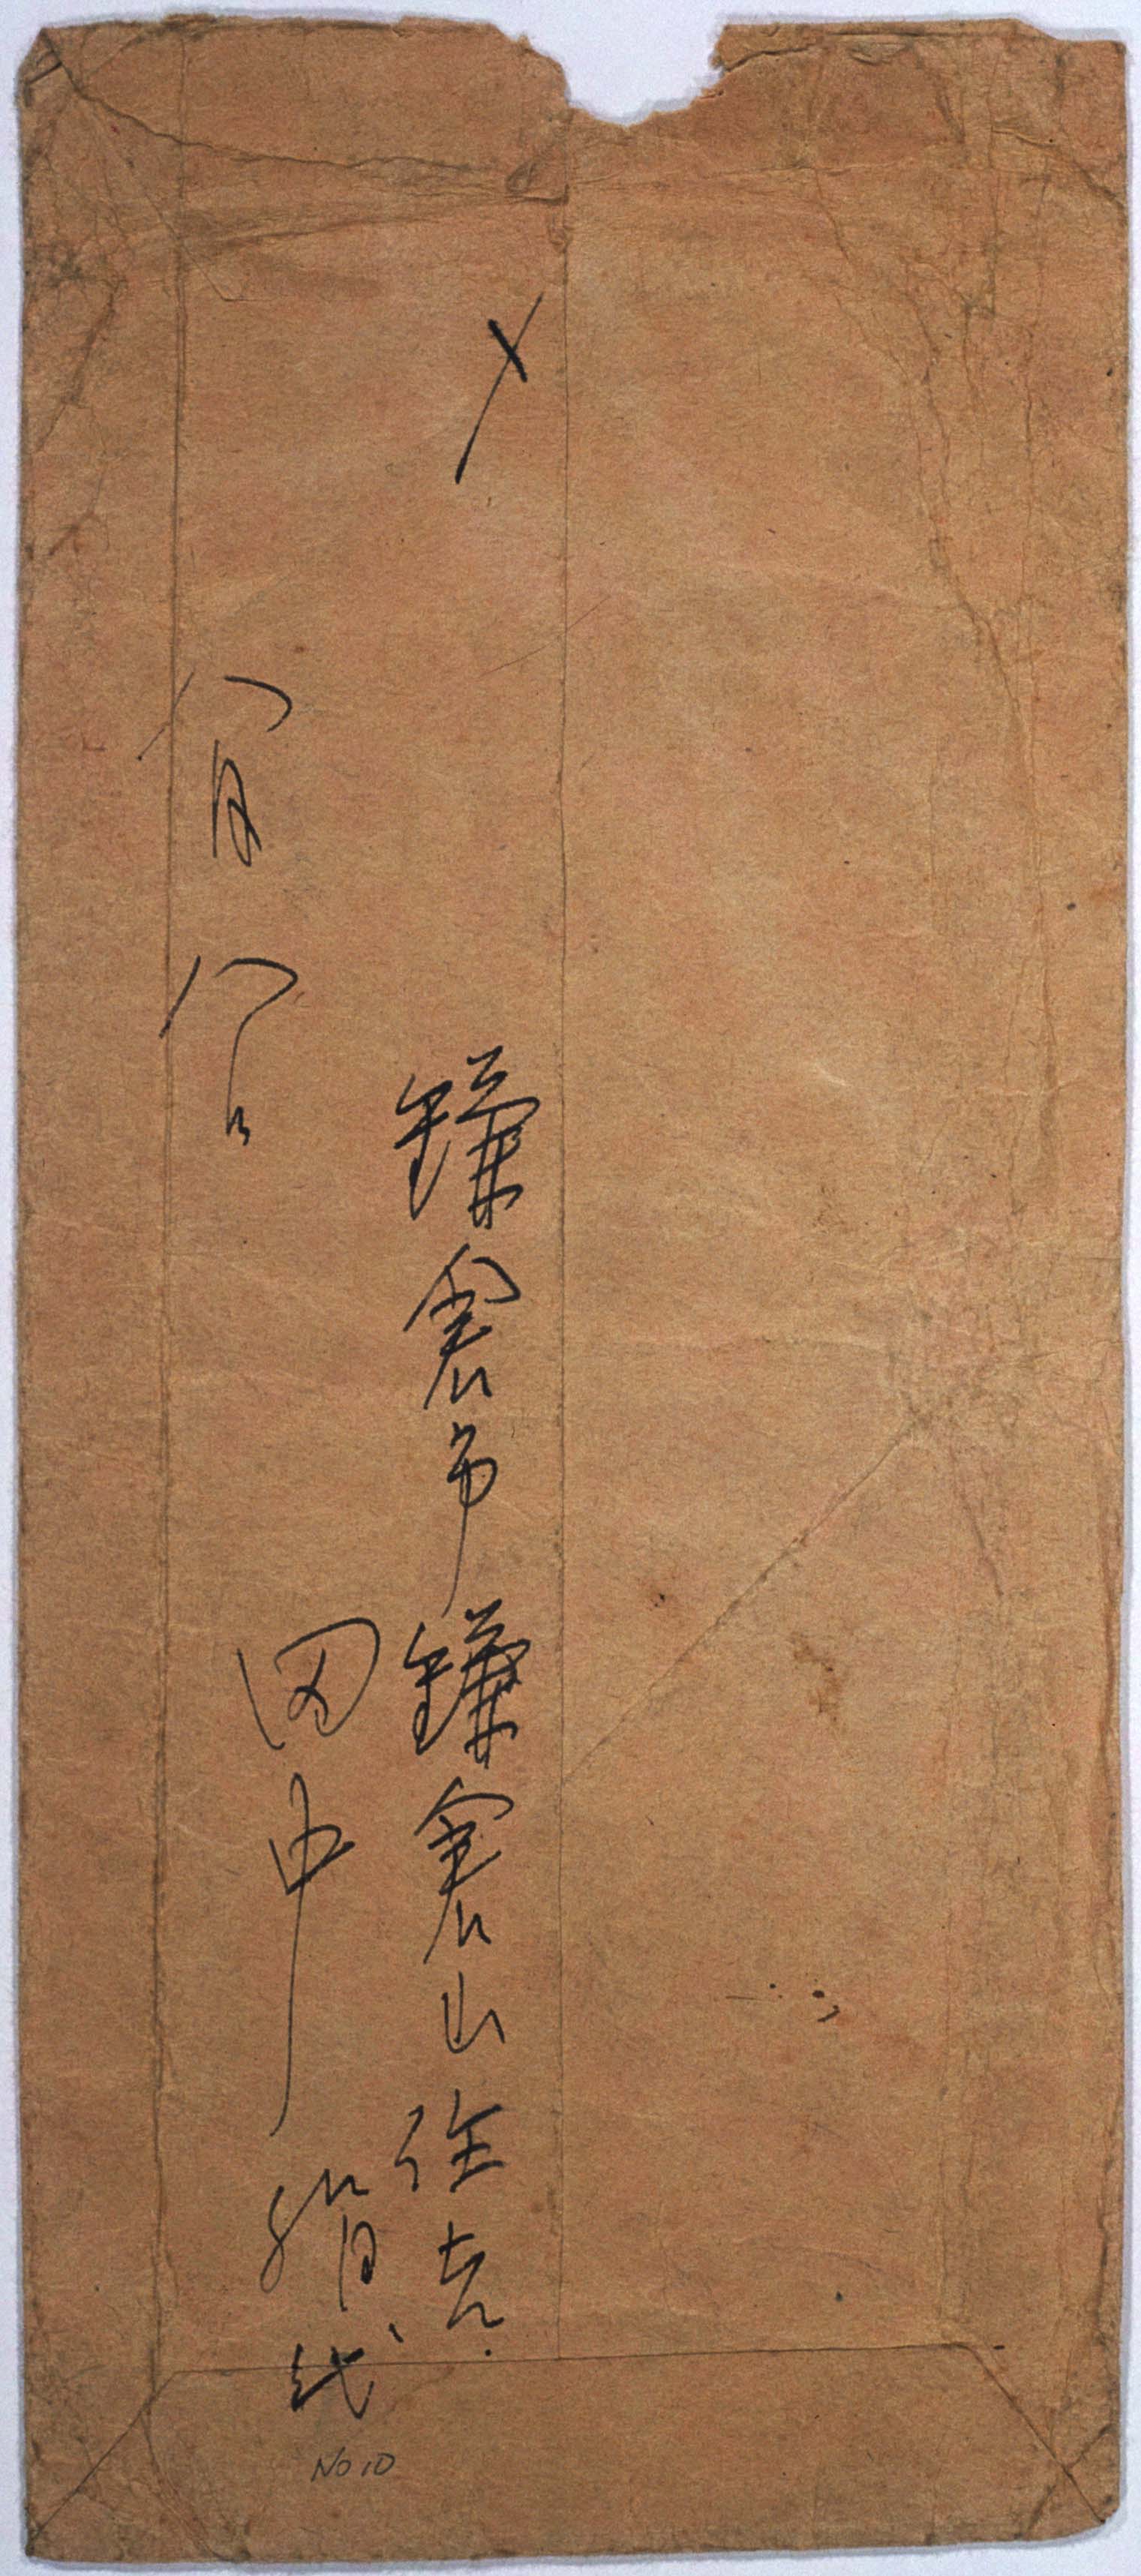 〆
鎌倉市鎌倉山住吉
田中絹代
八月八日
No 10